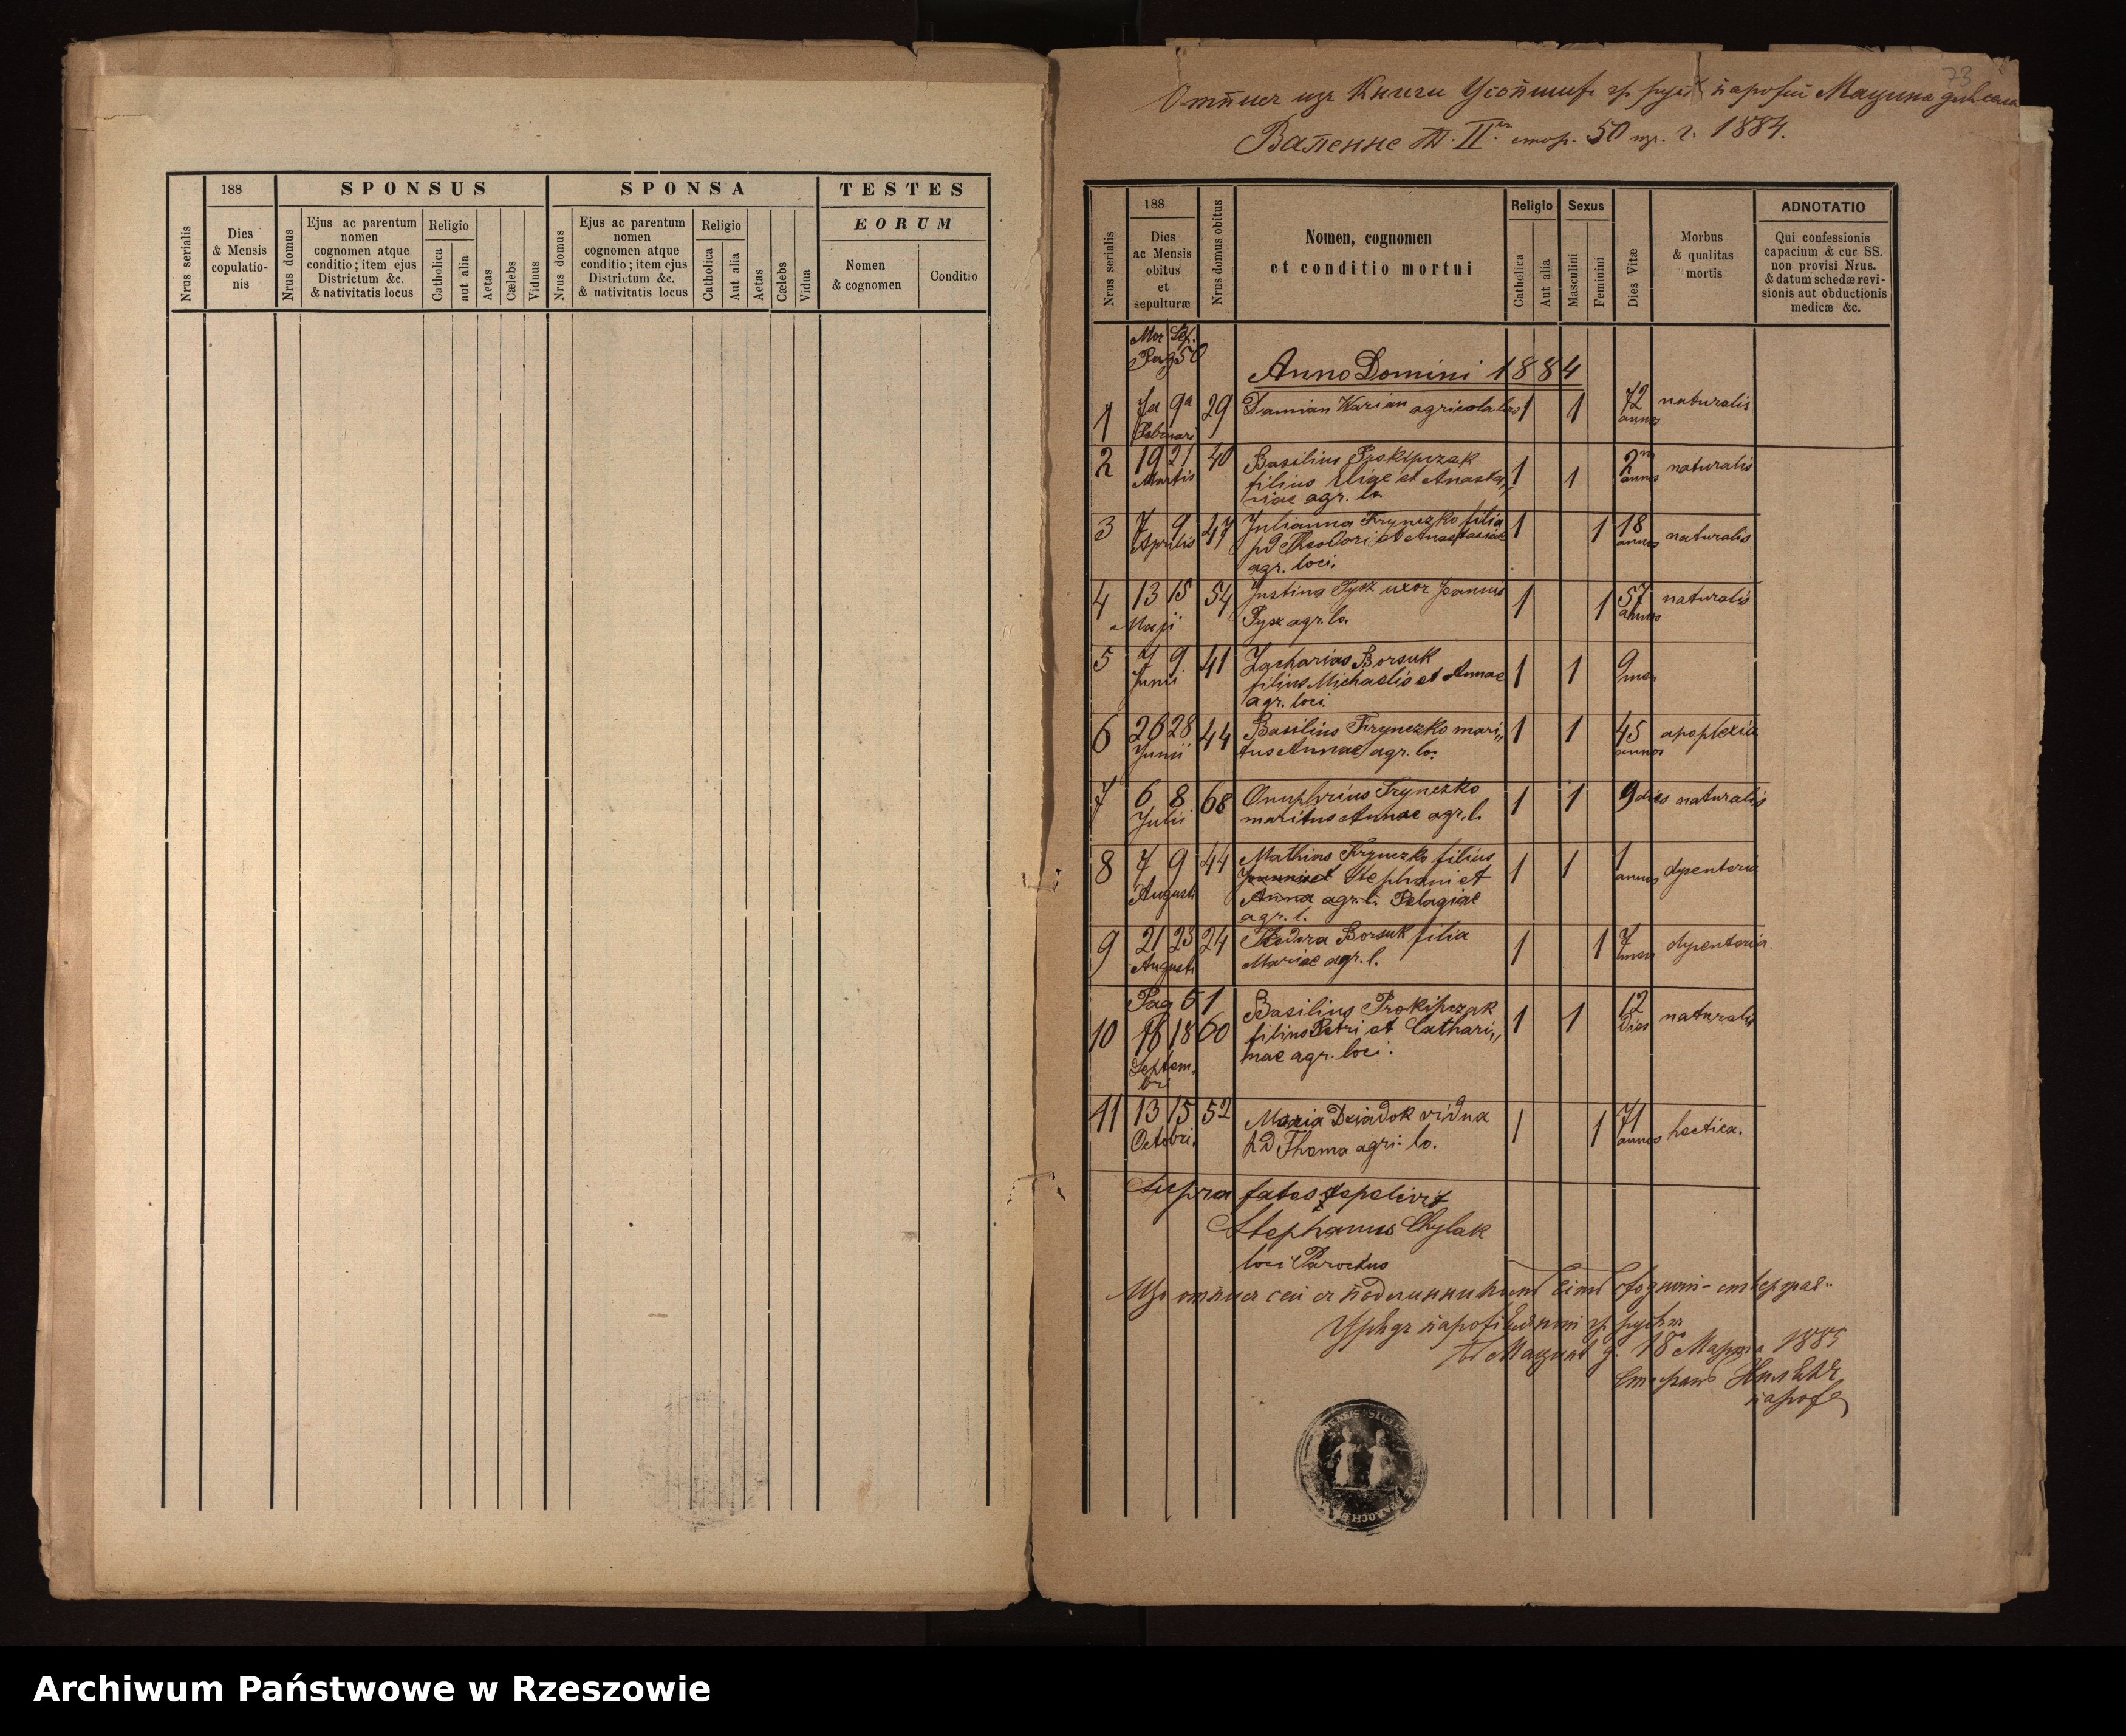 188
SPONSUS
SPONSA
TESTES
EORUM
Nrus serialis
Dies
& Mensis
copulatio-
nis
Nrus domus
Ejus ac parentum
nomen
cognomen atque
conditio; item ejus
Districtum &c.
& nativitatis locus
Religio
Catholica
aut alia
Aetas
Cælebs
Viduus
Nrus domus
Ejus ac parentum
nomen
cognomen atque
conditio; item ejus
Districtum &c.
& nativitatis locus
Religio
Catholica
Aut alia
Aetas
Cælebs
Vidua
Nomen
& cognomen
Conditio
73
Мацина
Валенне Т. II. стор. 50 1884.
Nrus serialis
188
Dies
ac Mensis
obitus
et
sepulturæ
Nrus domus obitus
Nomen, cognomen
et conditio mortui
Religio
Catholica
Aut alia
Sexus
Masculini
Feminini
Dies Vitæ
Morbus
& qualitas
mortis
ADNOTATIO
Qui confessionis
capacium & cur SS.
non provisi Nrus.
& datum schedæ revi-
sionis aut obductionis
medicæ &c.
Mor Sep.
Pag 50
Anno Domini 1884
1 7a 9a 29 Damian agricola 1 1 72 naturalis
Februari annos
2 19 21 40 Basilius Prokipczak 1 1 2 naturalis
Martis filius Eliae et Anasta„ annos
siae agr. lo.
3 7 9 47 Julianna Frynczko filia 1 1 18 naturalis
Aprilis pd Theodori et Anastasiae annos
agr. loci.
4 13 15 54 Justina Pysz uxor Joannis 1 1 57 naturalis
Maji Pysz agr. lo. annos
5 7 9 41 Zacharias Borsuk 1 1 9
Junii filius Michaelis et Annae
agr. loci
6 26 28 44 Basilius Frynczko mari„ 1 1 45 apoplexia
Junii tus Annae agr. lo. annos
7 6 8 68 Onuphrius Frynczko 1 1 9 dies naturalis
Julii maritus Annae agr. l.
8 7 9 44 Mathias Frynczko filius 1 1 1 dysenteria
Augusti Stephani et annos
Anna agr. l. Pelagiae
agr. l.
9 21 23 24 Theodora Borsuk filia 1 1 7 dysenteria
Augusti Mariae agr. l.
Pag 51
10 16 18 60 Basilius Prokipczak 1 1 12 naturalis
Septem. filius Petri et Cathari„ Dies
bri nae agr. loci.
11 13 15 52 Maria Dziadok vidua 1 1 71 hectica.
Octobri. pd Thoma agri. lo. annos
Supra fatos sepelivit
Stephanus Chylak
loci Parochus
18 Марта 1885
Archiwum Państwowe w Rzeszowie